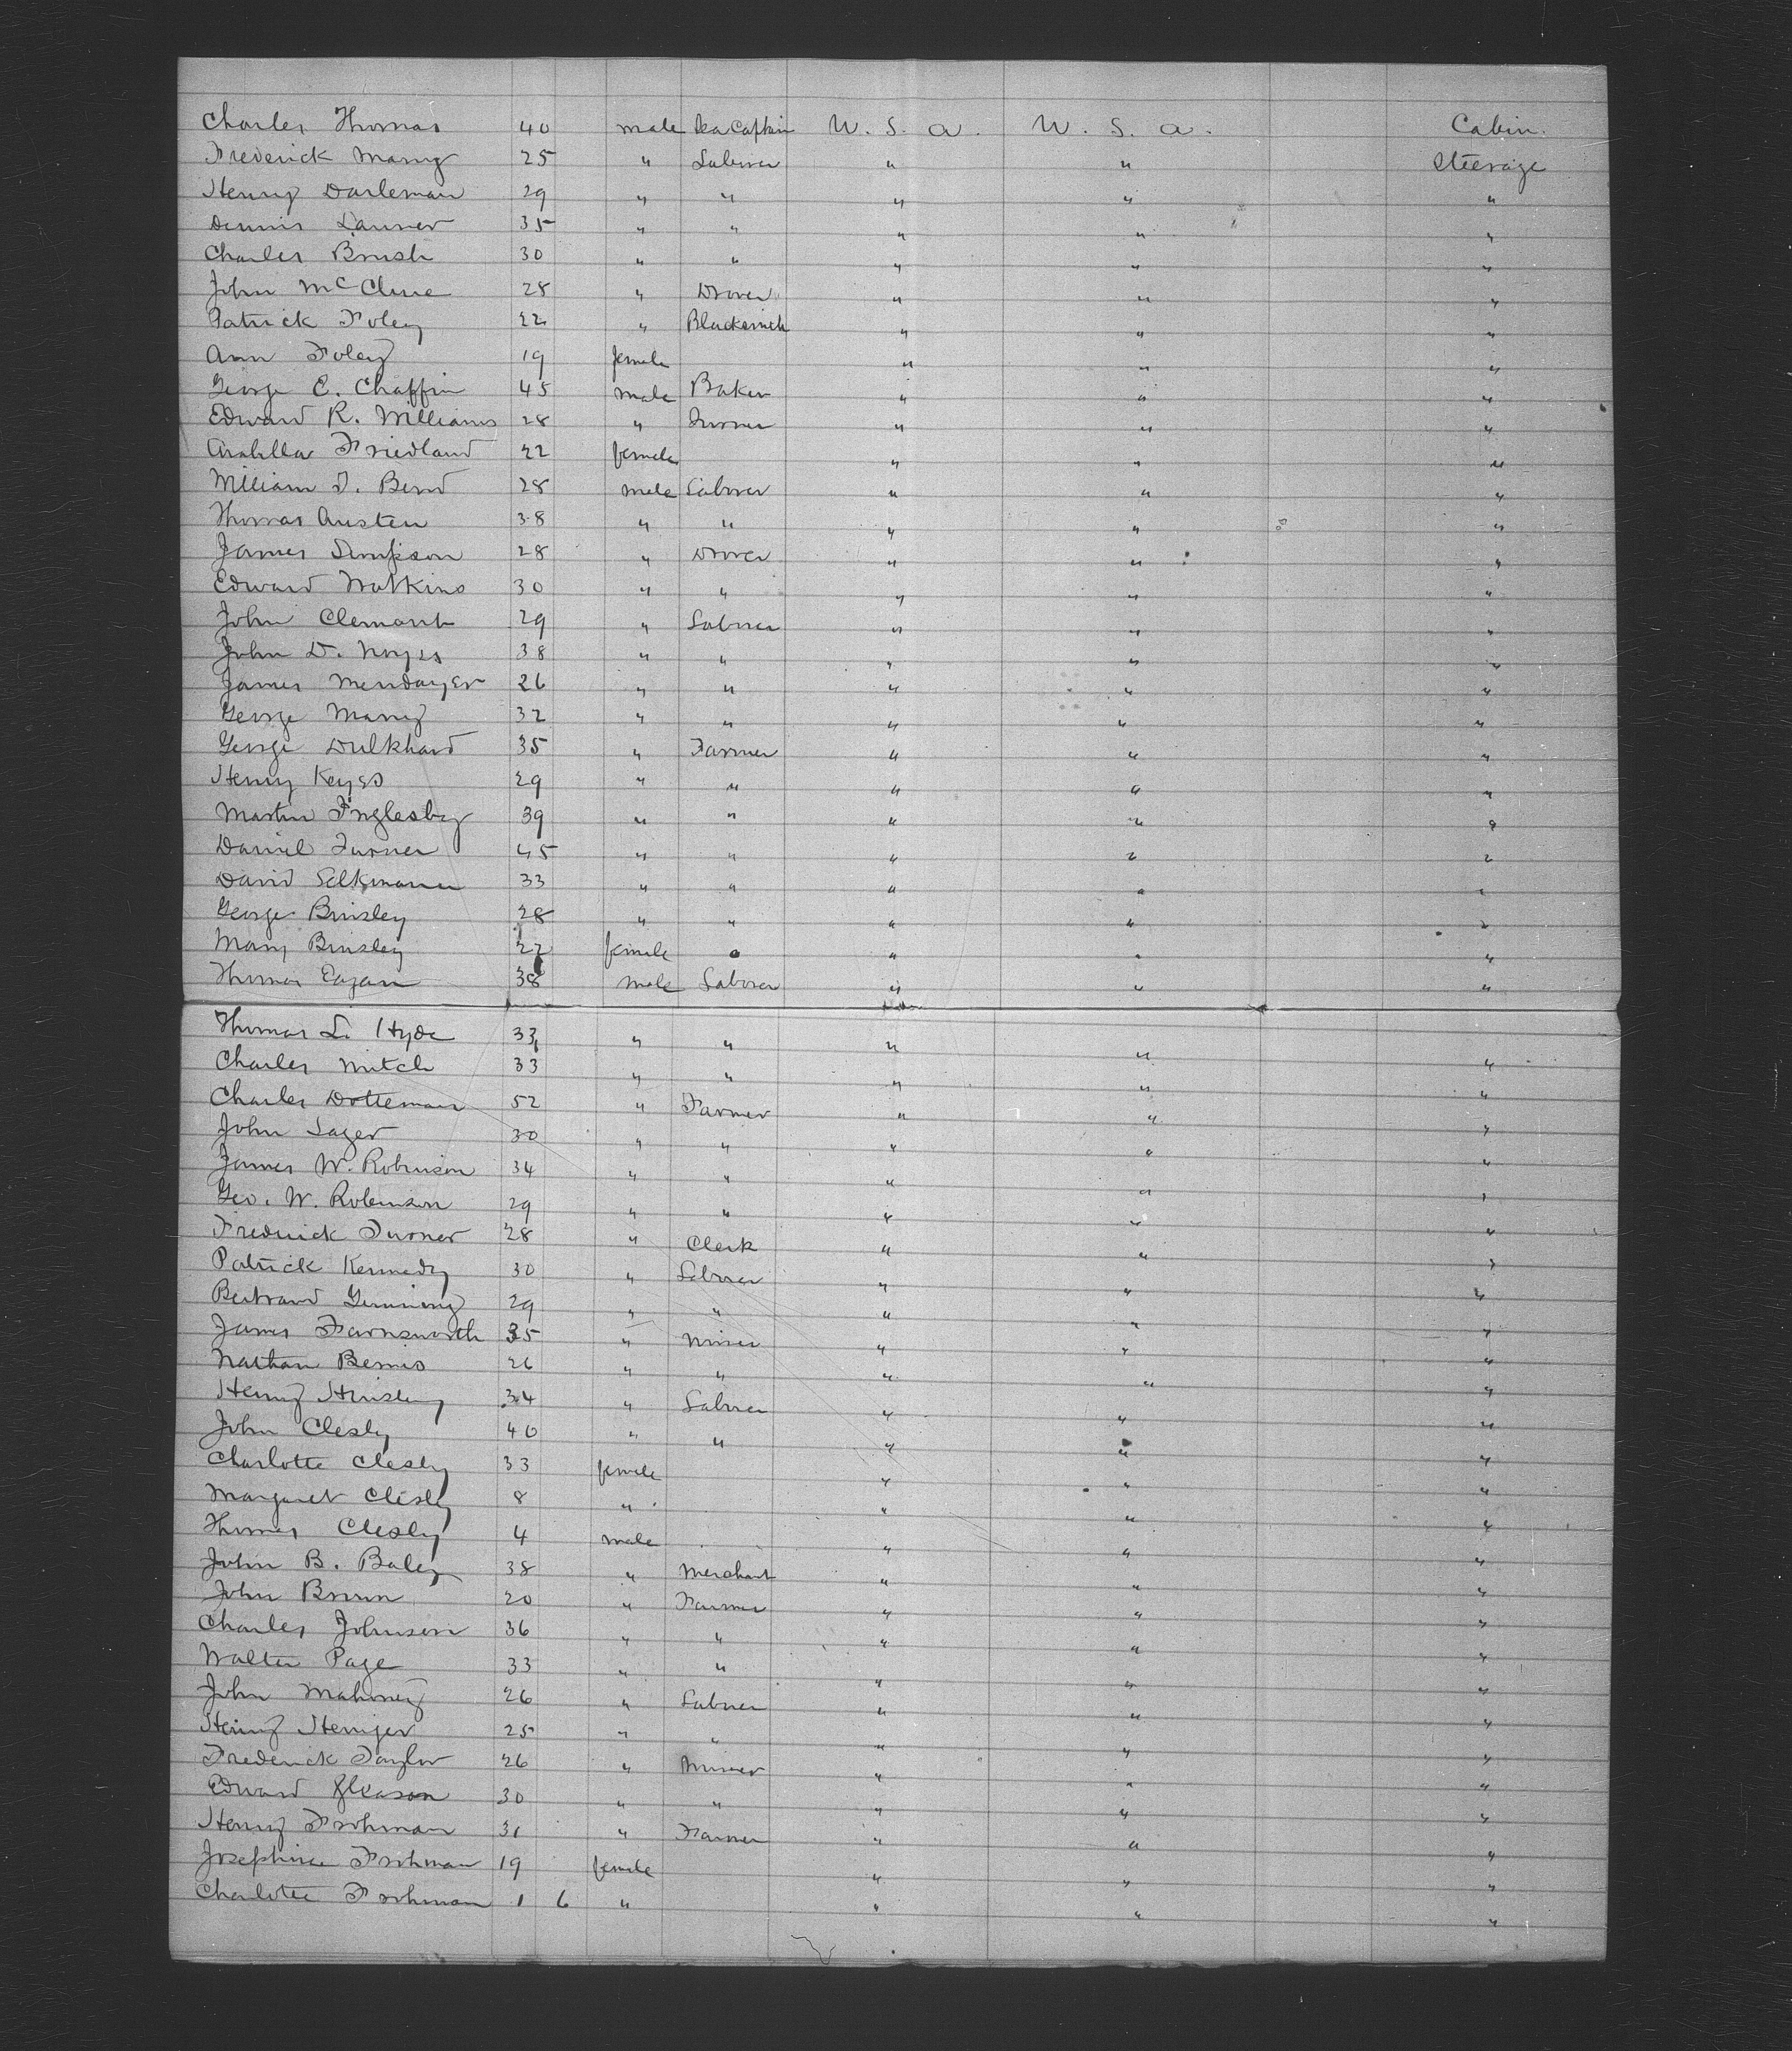 Charles Thomas 40 male Sea Captain U. S. a. U. S. a. Cabin.
Frederick Many 25 " Laborer " " Steerage
Henry Darleman 29 " " " " "
Dennis 35 " " " " "
Charles Brush 30 " " " " "
John McClure 28 " Drover " " "
Patrick Foley 22 " Blacksmith " " "
Ann Foley 19 female " " "
George E. Chaffin 45 male Baker " " "
Edward R. Williams 28 " " " "
Arabella Friedland 22 female " " "
William D. 28 male Laborer " " "
Thomas Austen 38 " " " " "
James Simpson 28 " Drover " " "
Edward Watkins 30 " " " " "
John Clemont 29 " Laborer " " "
John D. Noyes 38 " " " " "
James 26 " " " " "
George Many 32 " " " " "
George Dulkhard 35 " Farmer " " "
Henry Keyes 29 " " " " "
Martin Inglesby 39 " " " " "
Daniel Turner 45 " " " " "
David Selkmann 33 " " " " "
George Brinsley 28 " " " " "
Mary Brinsley 22 female " " " "
Thomas Eagan 38 male Laborer " " "
Thomas L. Hyde 33 " " " " "
Charles Mitch 33 " " " " "
Charles Dotteman 52 " Farmer " " "
John Sager 30 " " " " "
James W. Robinson 34 " " " " "
Geo. W. Robinson 29 " " " " "
Frederick Turner 28 " Clerk " " "
Patrick Kennedy 30 " Laborer " " "
Bertrand 29 " " " " "
James Farnsworth 35 " Miner " " "
Nathan Bemis 26 " " " " "
Henry Hinsley 34 " Laborer " " "
John Clesby 40 " " " " "
Charlotte Clesby 33 female " " "
Margaret Clesby 8 " " " "
Thomas Clesby 4 male " " "
John B. Baley 38 " Merchant " " "
John Brown 20 " Farmer " " "
Charles Johnson 36 " " " " "
Walter Page 33 " " " " "
John Mahoney 26 " Laborer " " "
Henry 25 " " " " "
Frederick Taylor 26 " Miner " " "
Edward Gleason 30 " " " " "
Henry Frohman 31 " Farmer " " "
Josephine Frohman 19 female " " "
Charlotte Frohman 1 6 " " " "